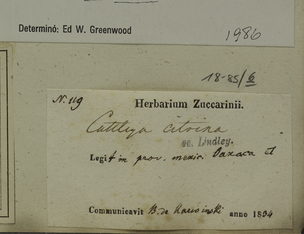 Determinó: Ed W. Greenwood
1986
18-85/6
N. 119
Herbarium Zuccarinii.
Cattleya citrina
Lindley.
Legit in prov. mexic. Oaxaca et
Communicavit B. de Karwinski anno 1834